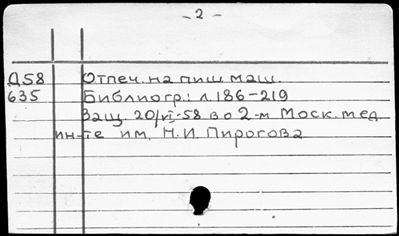 - 2 -
Д58 Отпеч. на пиш маш.
635 Библиогр.: л. 186-219
Защ. 20/VI-58 в о 2-м Моск. мед.
ин-те им. Н.И. Пирогова